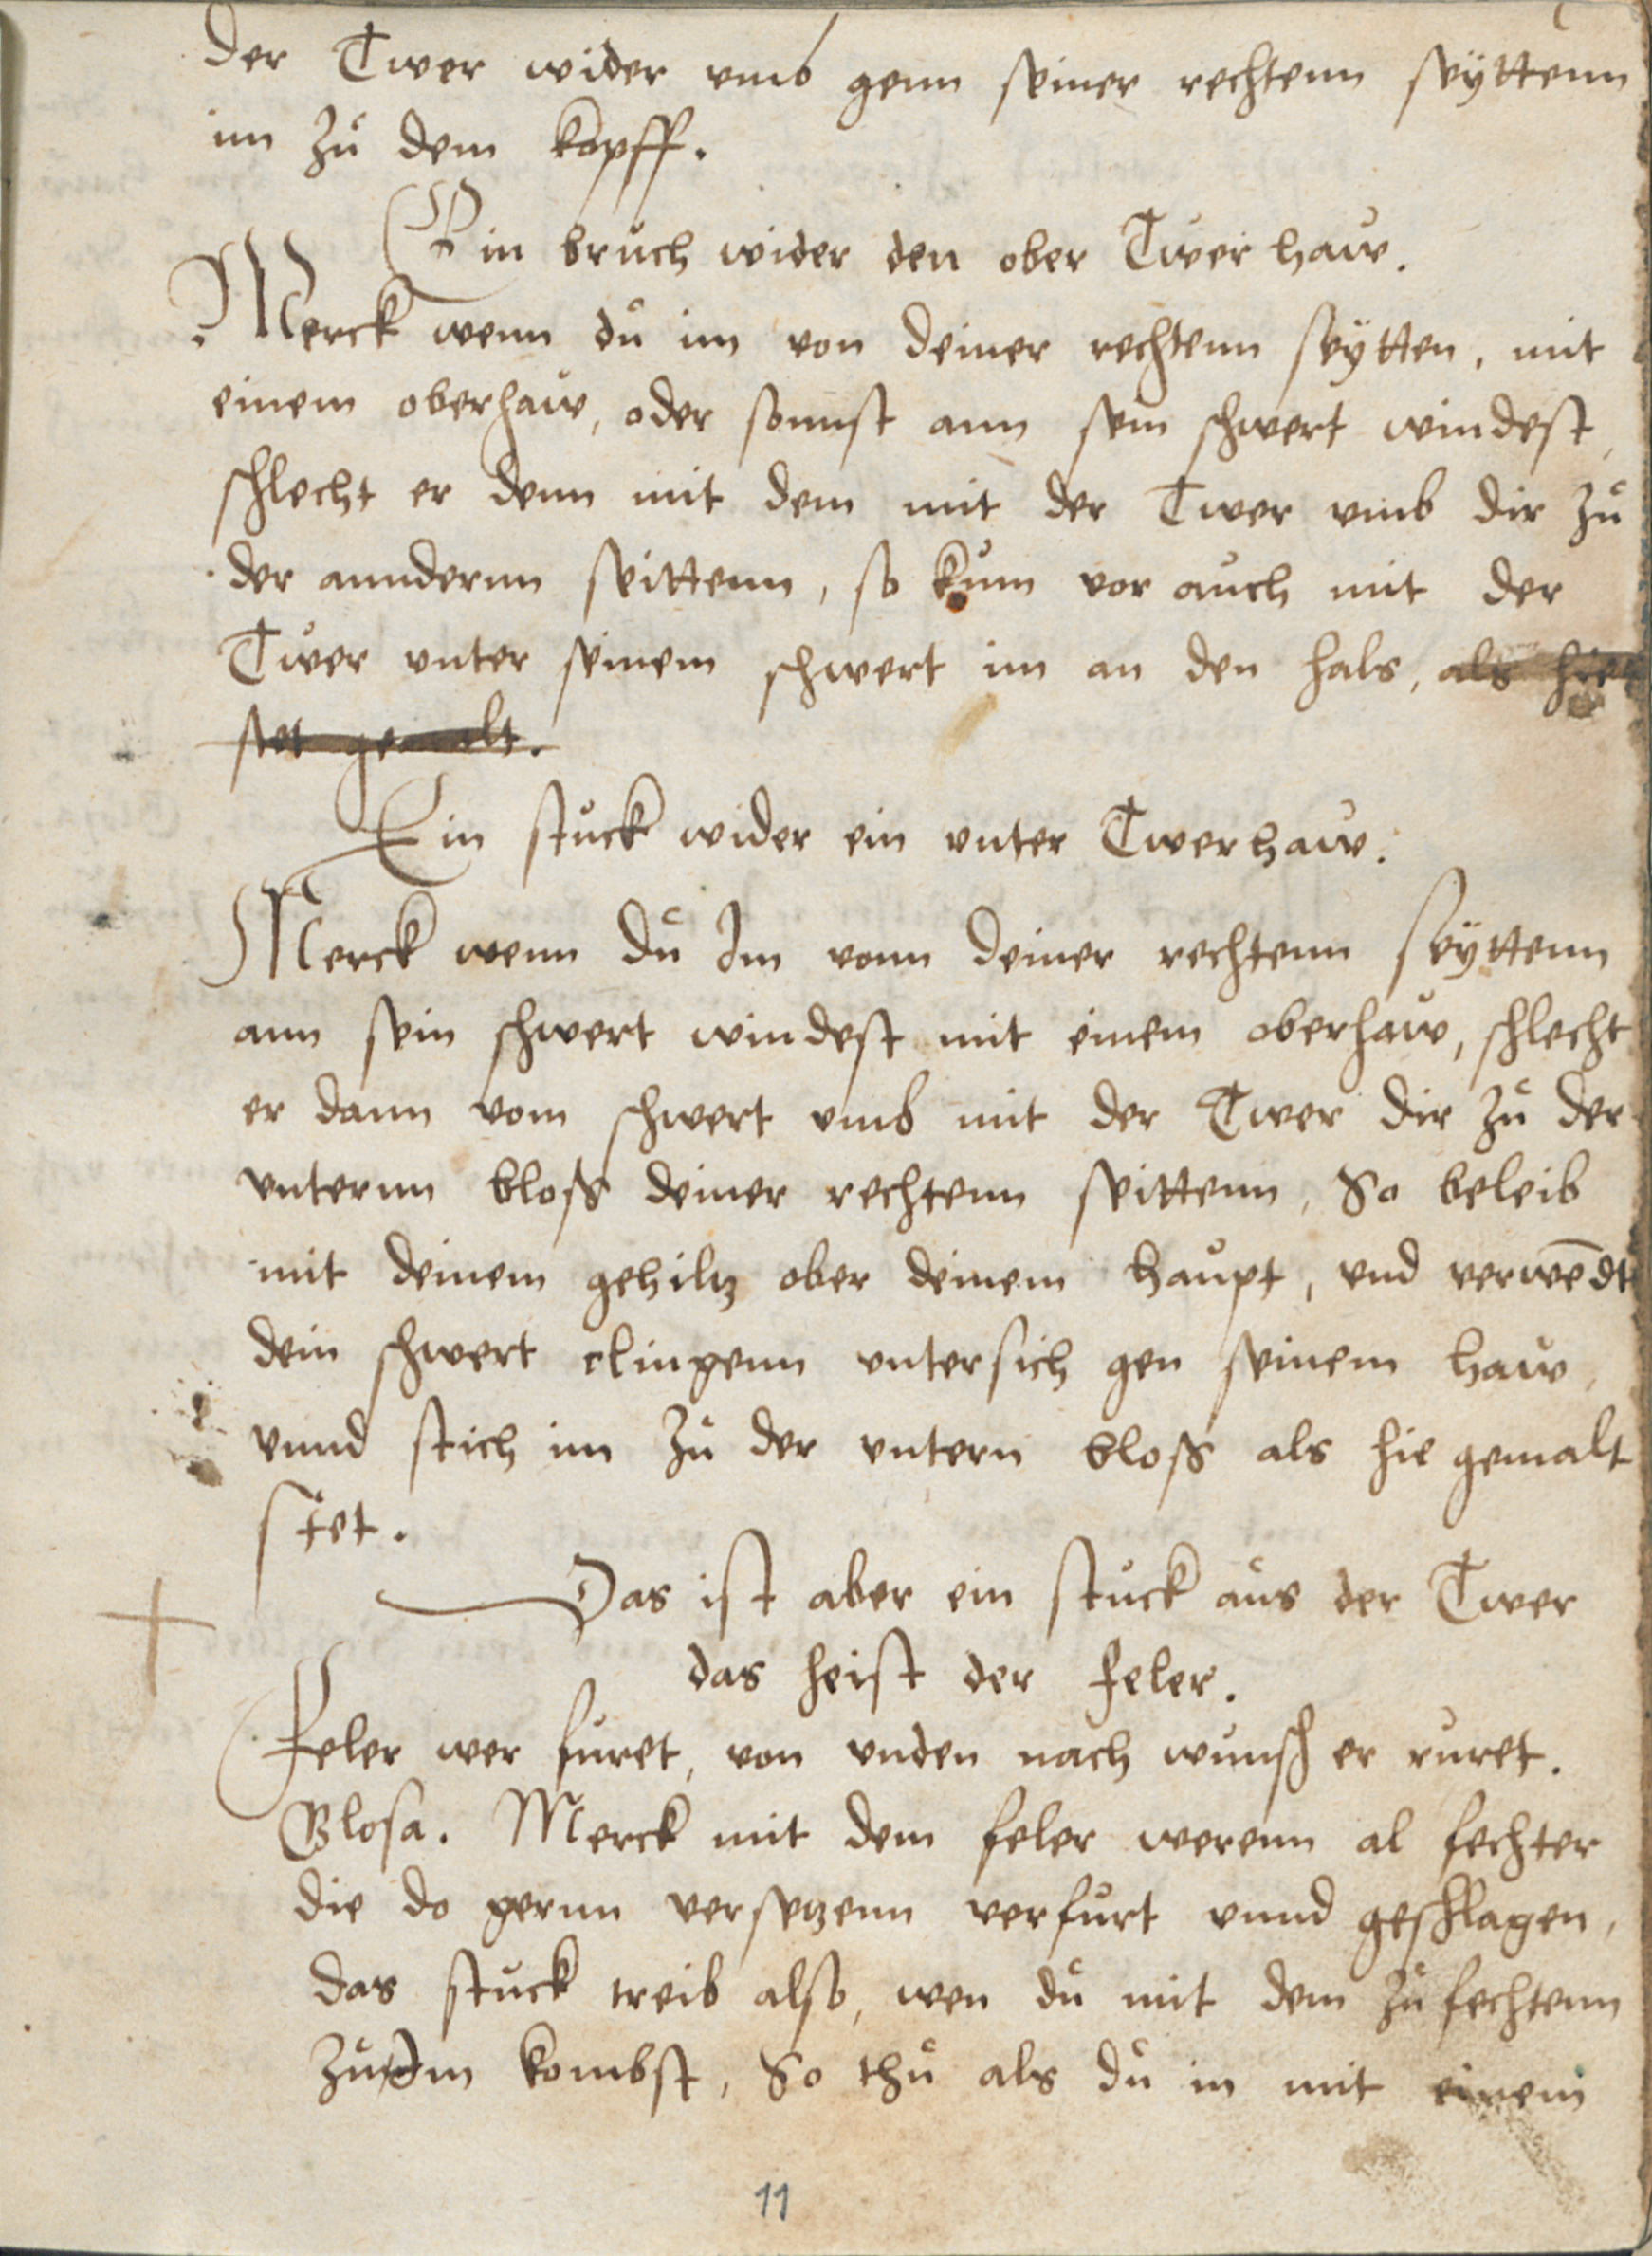 der Twer wider umb genn seiner rechtenn seÿttenn
im zů dem kopff.
Ein brůch wider den ober Twer haw.
Merck wenn dů im von deiner rechtenn seÿtten, mit
einem oberhaw, oder sonnst ann sein schwert windest,
schlecht er denn mit dem mit der Twer vmb dir zů
der anndernn seittenn, so kum vor aůch mit der
Twer vnter seinem schwert im an den hals, als hie
stet gemalt.
Ein stůck wider ein vnter Twerhaw.
Merck wenn dů Im vonn deiner rechtenn seÿttenn
ann sein schwert windest mit einem oberhaw, schlecht
er dann vom schwert vmb mit der Twer dir zů der
vnternn bloß deiner rechtenn seittenn, So beleib
mit deinem gehiltz ober deinem haůpt, vnd verwēdt
dein schwert clingenn vntersich gen seinem haw,
vnnd stich im zů der vntern bloß als hie gemalt
stet.
Das ist aber ein stůck aůs der Twer
das heist der feler.
Feler wer fůret, von vnden nach wůnsch er růret.
Glosa. Merck mit dem feler werenn al fechter
die do gernn versetzenn verfůrt vnnd geschlagen,
das stůck treib also, wen dů mit dem zů fechtenn
zů Im kombst, So thů als dů in mit einem
11